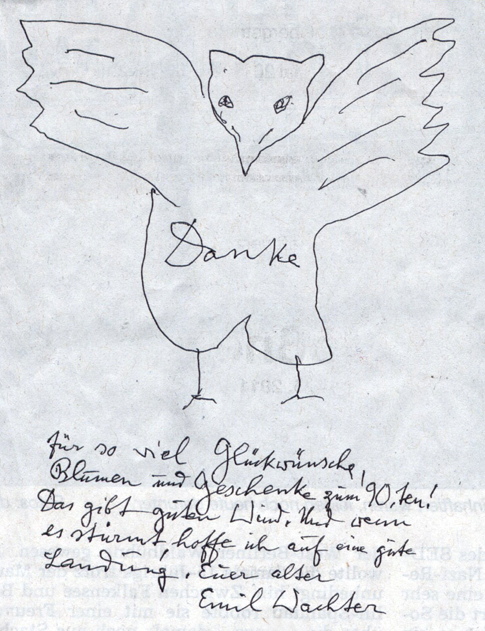 Danke
für so viel Glückwünsche,
Blumen und Geschenke zum 90.ten!
Das gibt guten Wind. Und wenn
es stürmt hoffe ich auf eine gute
Landung. Euer alter
Emil Wachter